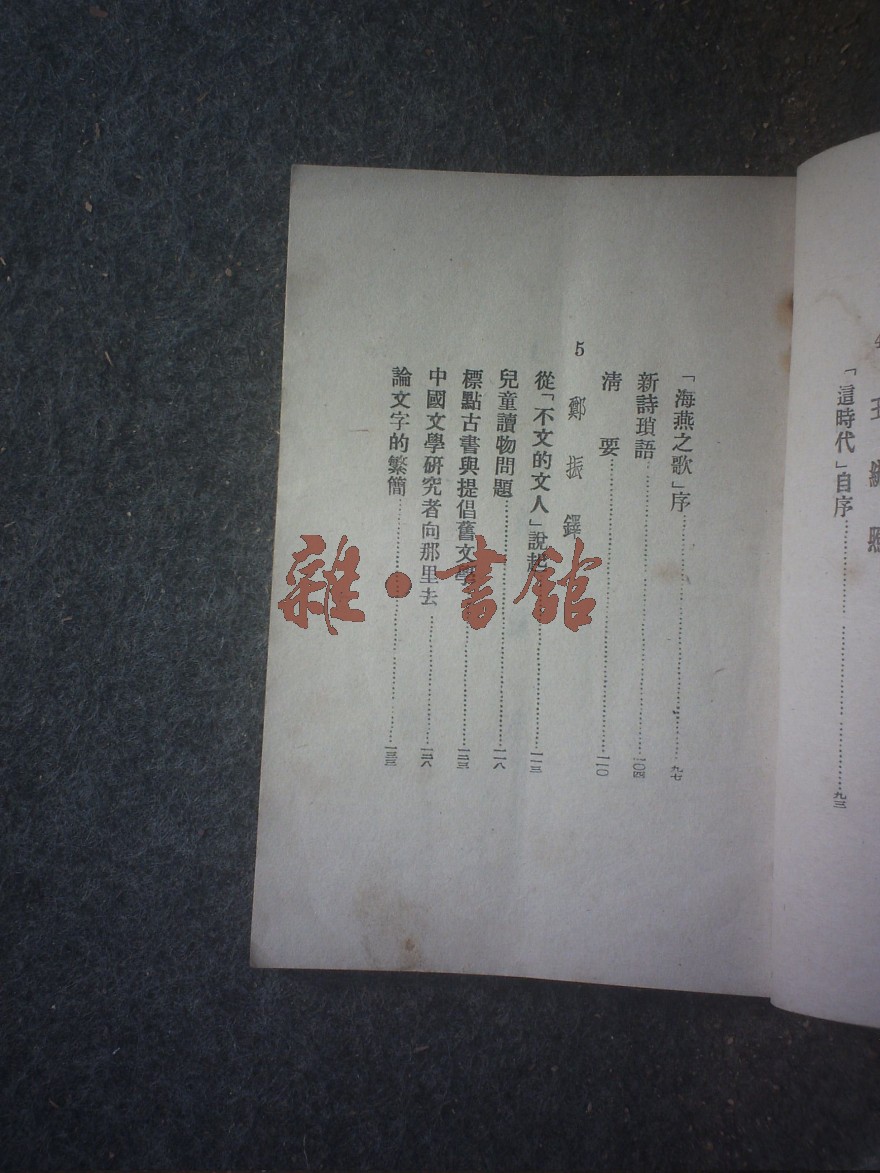 王統照
「這時代」自序……九三
「海燕之歌」序……九七
新詩瑣語……一〇四
清要……一一〇
5 鄭振鐸
從「不文的文人」說起……一一三
兒童讀物問題……一一八
標點古書與提倡舊文學……一二三
中國文學研究者向那里去……一二八
論文字的繁簡……一三三
雜·書館